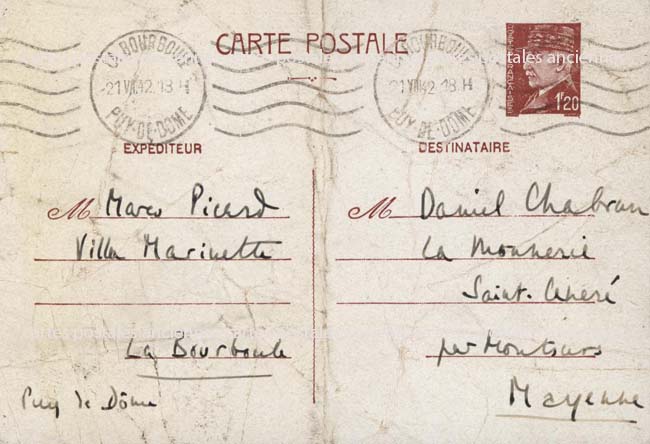 CARTE POSTALE
LA BOURBOULE
21 VII 42 18 H
PUY-DE-DOME
LA BOURBOULE
21 VII 42 18 H
PUY-DE-DOME
1F20
EXPÉDITEUR
M Marco Picard
Villa Marinette
La Bourboule
Puy de Dôme
DESTINATAIRE
M Daniel Chabrun
La Monnerie
Saint-Céneré
par Montsurs
Mayenne